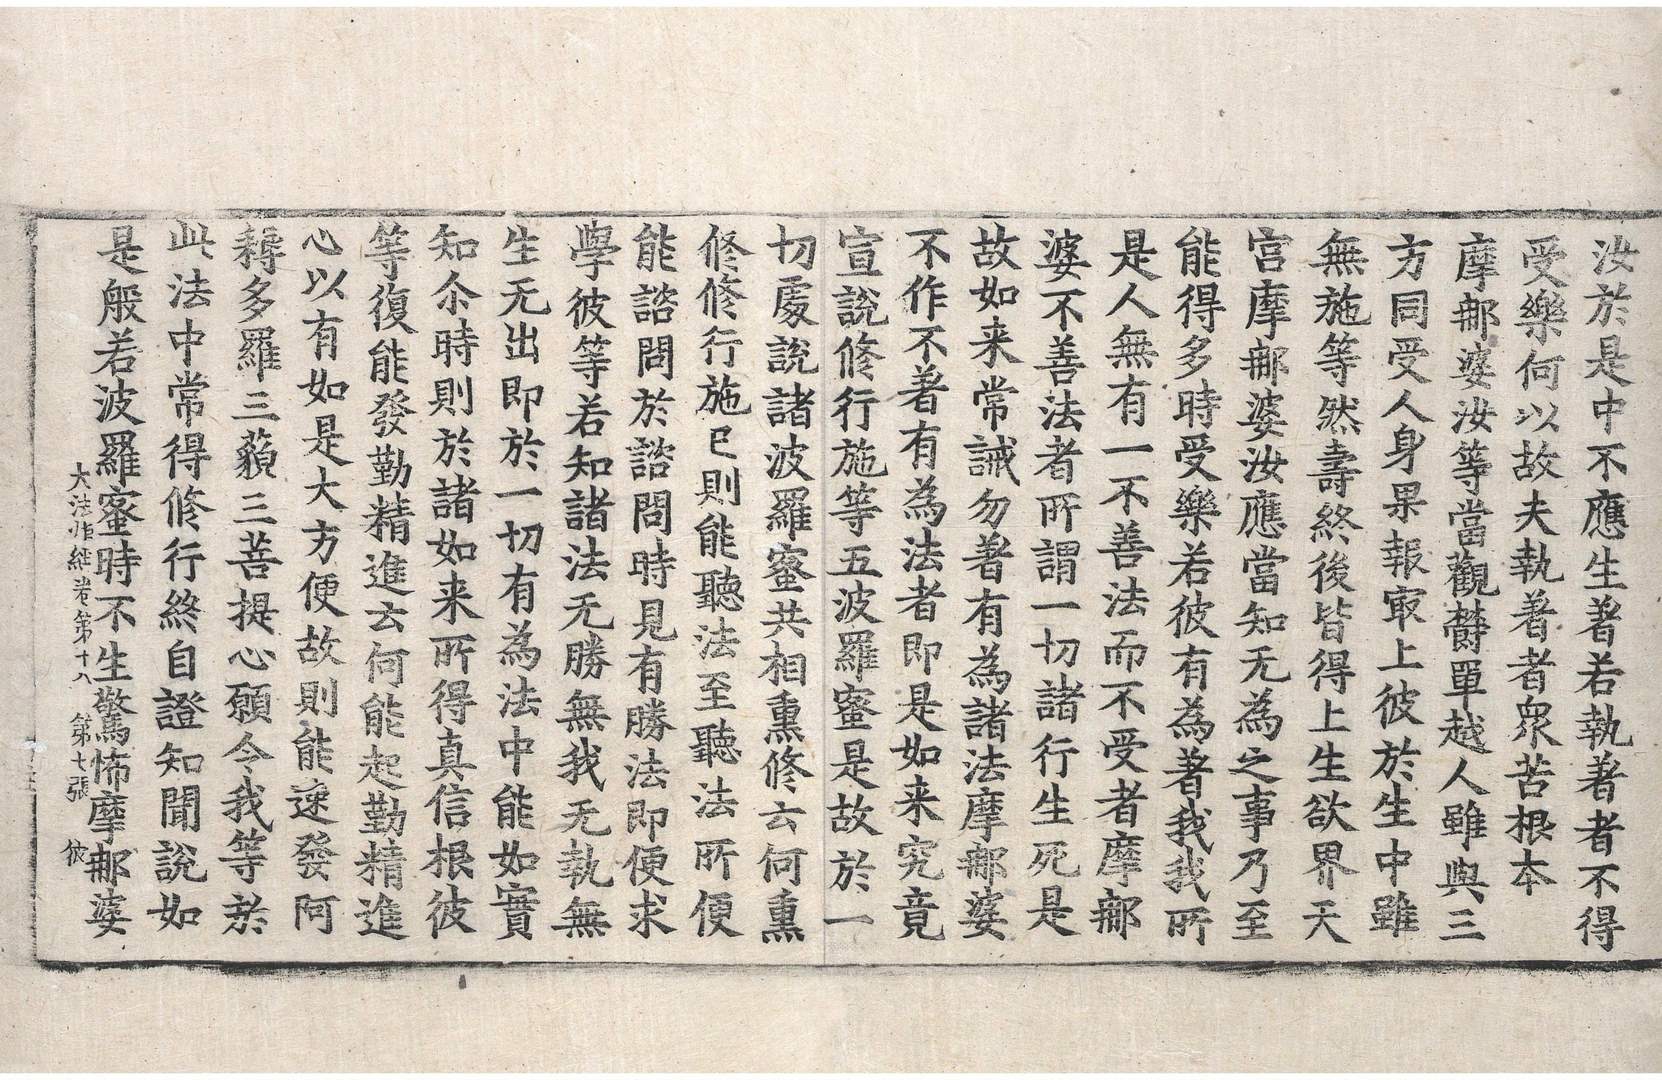 汝於是中不應生著若執著者不得
受樂何以故夫執著者衆苦根本
摩那婆汝等當觀欝單越人雖與三
方同受人身果報㝡上彼於生中雖
無施等然壽終後皆得上生欲界天
宫摩那婆汝應當知无為之事乃至
能得多時受樂若彼有為著我我所
是人無有一不善法而不受者摩那
婆不善法者所謂一切諸行生死是
故如来常誡勿著有為諸法摩那婆
不作不著有為法者即是如来究竟
宣說修行施等五波羅蜜是故於一
切處說諸波羅蜜共相熏修云何熏
修修行施已則能聽法至聽法所便
能諮問於諮問時見有勝法即便求
學彼等若知諸法无勝無我无執無
生无出即於一切有為法中能如實
知尒時則於諸如来所得真信根彼
等復能發勤精進云何能起勤精進
心以有如是大方便故則能速發阿
耨多羅三藐三菩提心願令我等於
此法中常得修行終自證知聞說如
是般若波羅蜜時不生驚怖摩那婆
大法炬經卷第十八 第七張 彼